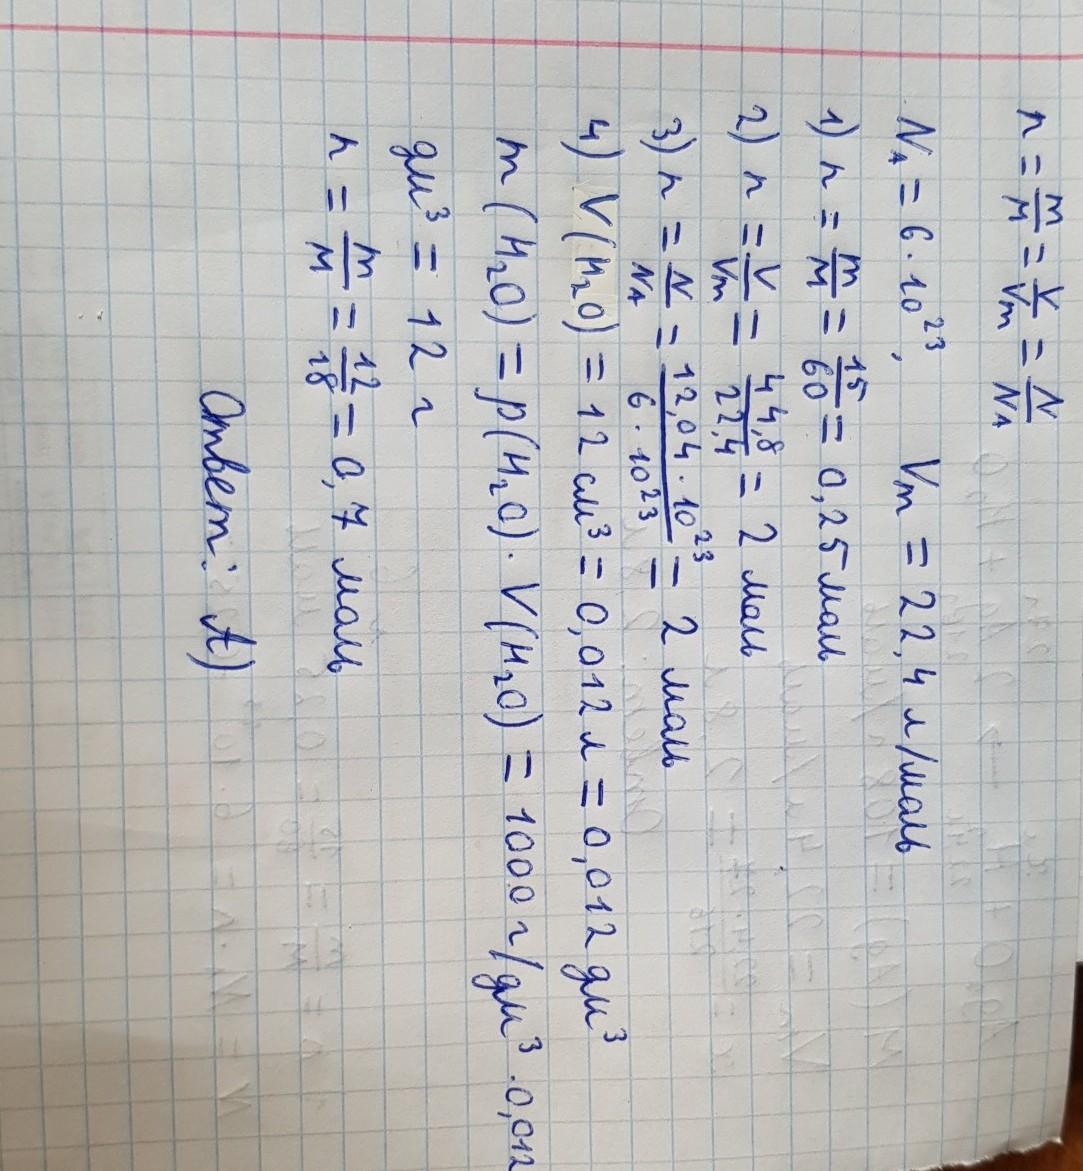 n = m/M = V/Vm = N/NA
NA = 6 · 10²³, Vm = 22,4 л/моль
1) n = m/M = 15/60 = 0,25 моль
2) n = V/Vm = 44,8/22,4 = 2 моль
3) n = N/NA = 12,04 · 10²³/6 · 10²³ = 2 моль
4) V(H₂O) = 12 см³ = 0,012 л = 0,012 дм³
m(H₂O) = p(H₂O) · V(H₂O) = 1000 г/дм³ · 0,012
дм³ = 12 г
n = m/M = 12/18 = 0,7 моль
Ответ: А)